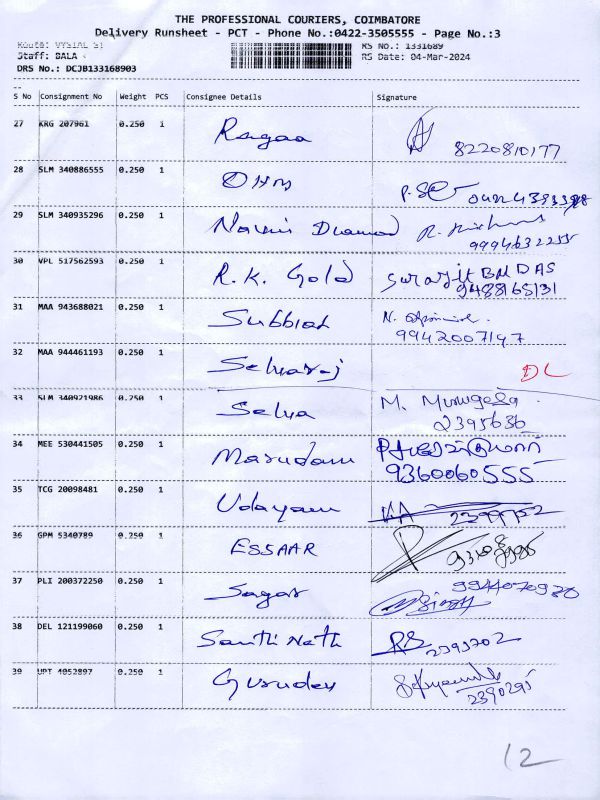 THE PROFESSIONAL COURIERS, COIMBATORE
Delivery Runsheet - PCT - Phone No.:0422-3505555 - Page No.:3
Route: VYSIAL ST RS No.: 1331689
Staff: BALA RS Date: 04-Mar-2024
DRS No.: DCJB133168903
S No Consignment No Weight PCS Consignee Details Signature
27 KRG 207961 0.250 1 Ragaa 8220810177
28 SLM 340886555 0.250 1 OHM
29 SLM 340935296 0.250 1 Diamond
9994632255
30 VPL 517562593 0.250 1 R.K. Gold Surajit BM DAS
9488165131
31 MAA 943688021 0.250 1 Subbiah N.
9942007197
32 MAA 944461193 0.250 1 Selvaraj DL
33 SLM 340921986 0.250 1 Selva M. Murugesa
2395636
34 MEE 530441505 0.250 1 Marudam
9360060555
35 TCG 20098481 0.250 1 Udayam
36 GPM 5340789 0.250 1 ESSAAR
37 PLI 200372250 0.250 1 Sagar
38 DEL 121199060 0.250 1 Santhi Nath RS 2393702
39 UPT 4052897 0.250 1 Gurudev
2390295
12